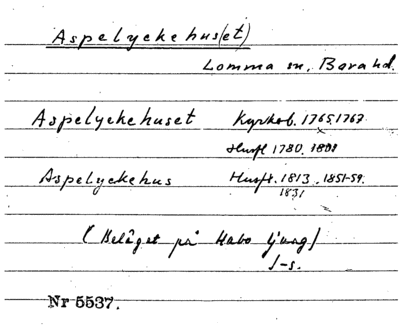 Aspelyckehus(et)
Lomma sn, Bara hd.
Aspelyckehuset Kyrkob. 1765, 1767
Husfl 1780, 1801
Aspelyckehus Husfl. 1813, 1851-59.
1831
(Beläget på Habo ljung)
J-s.
Nr 5537.